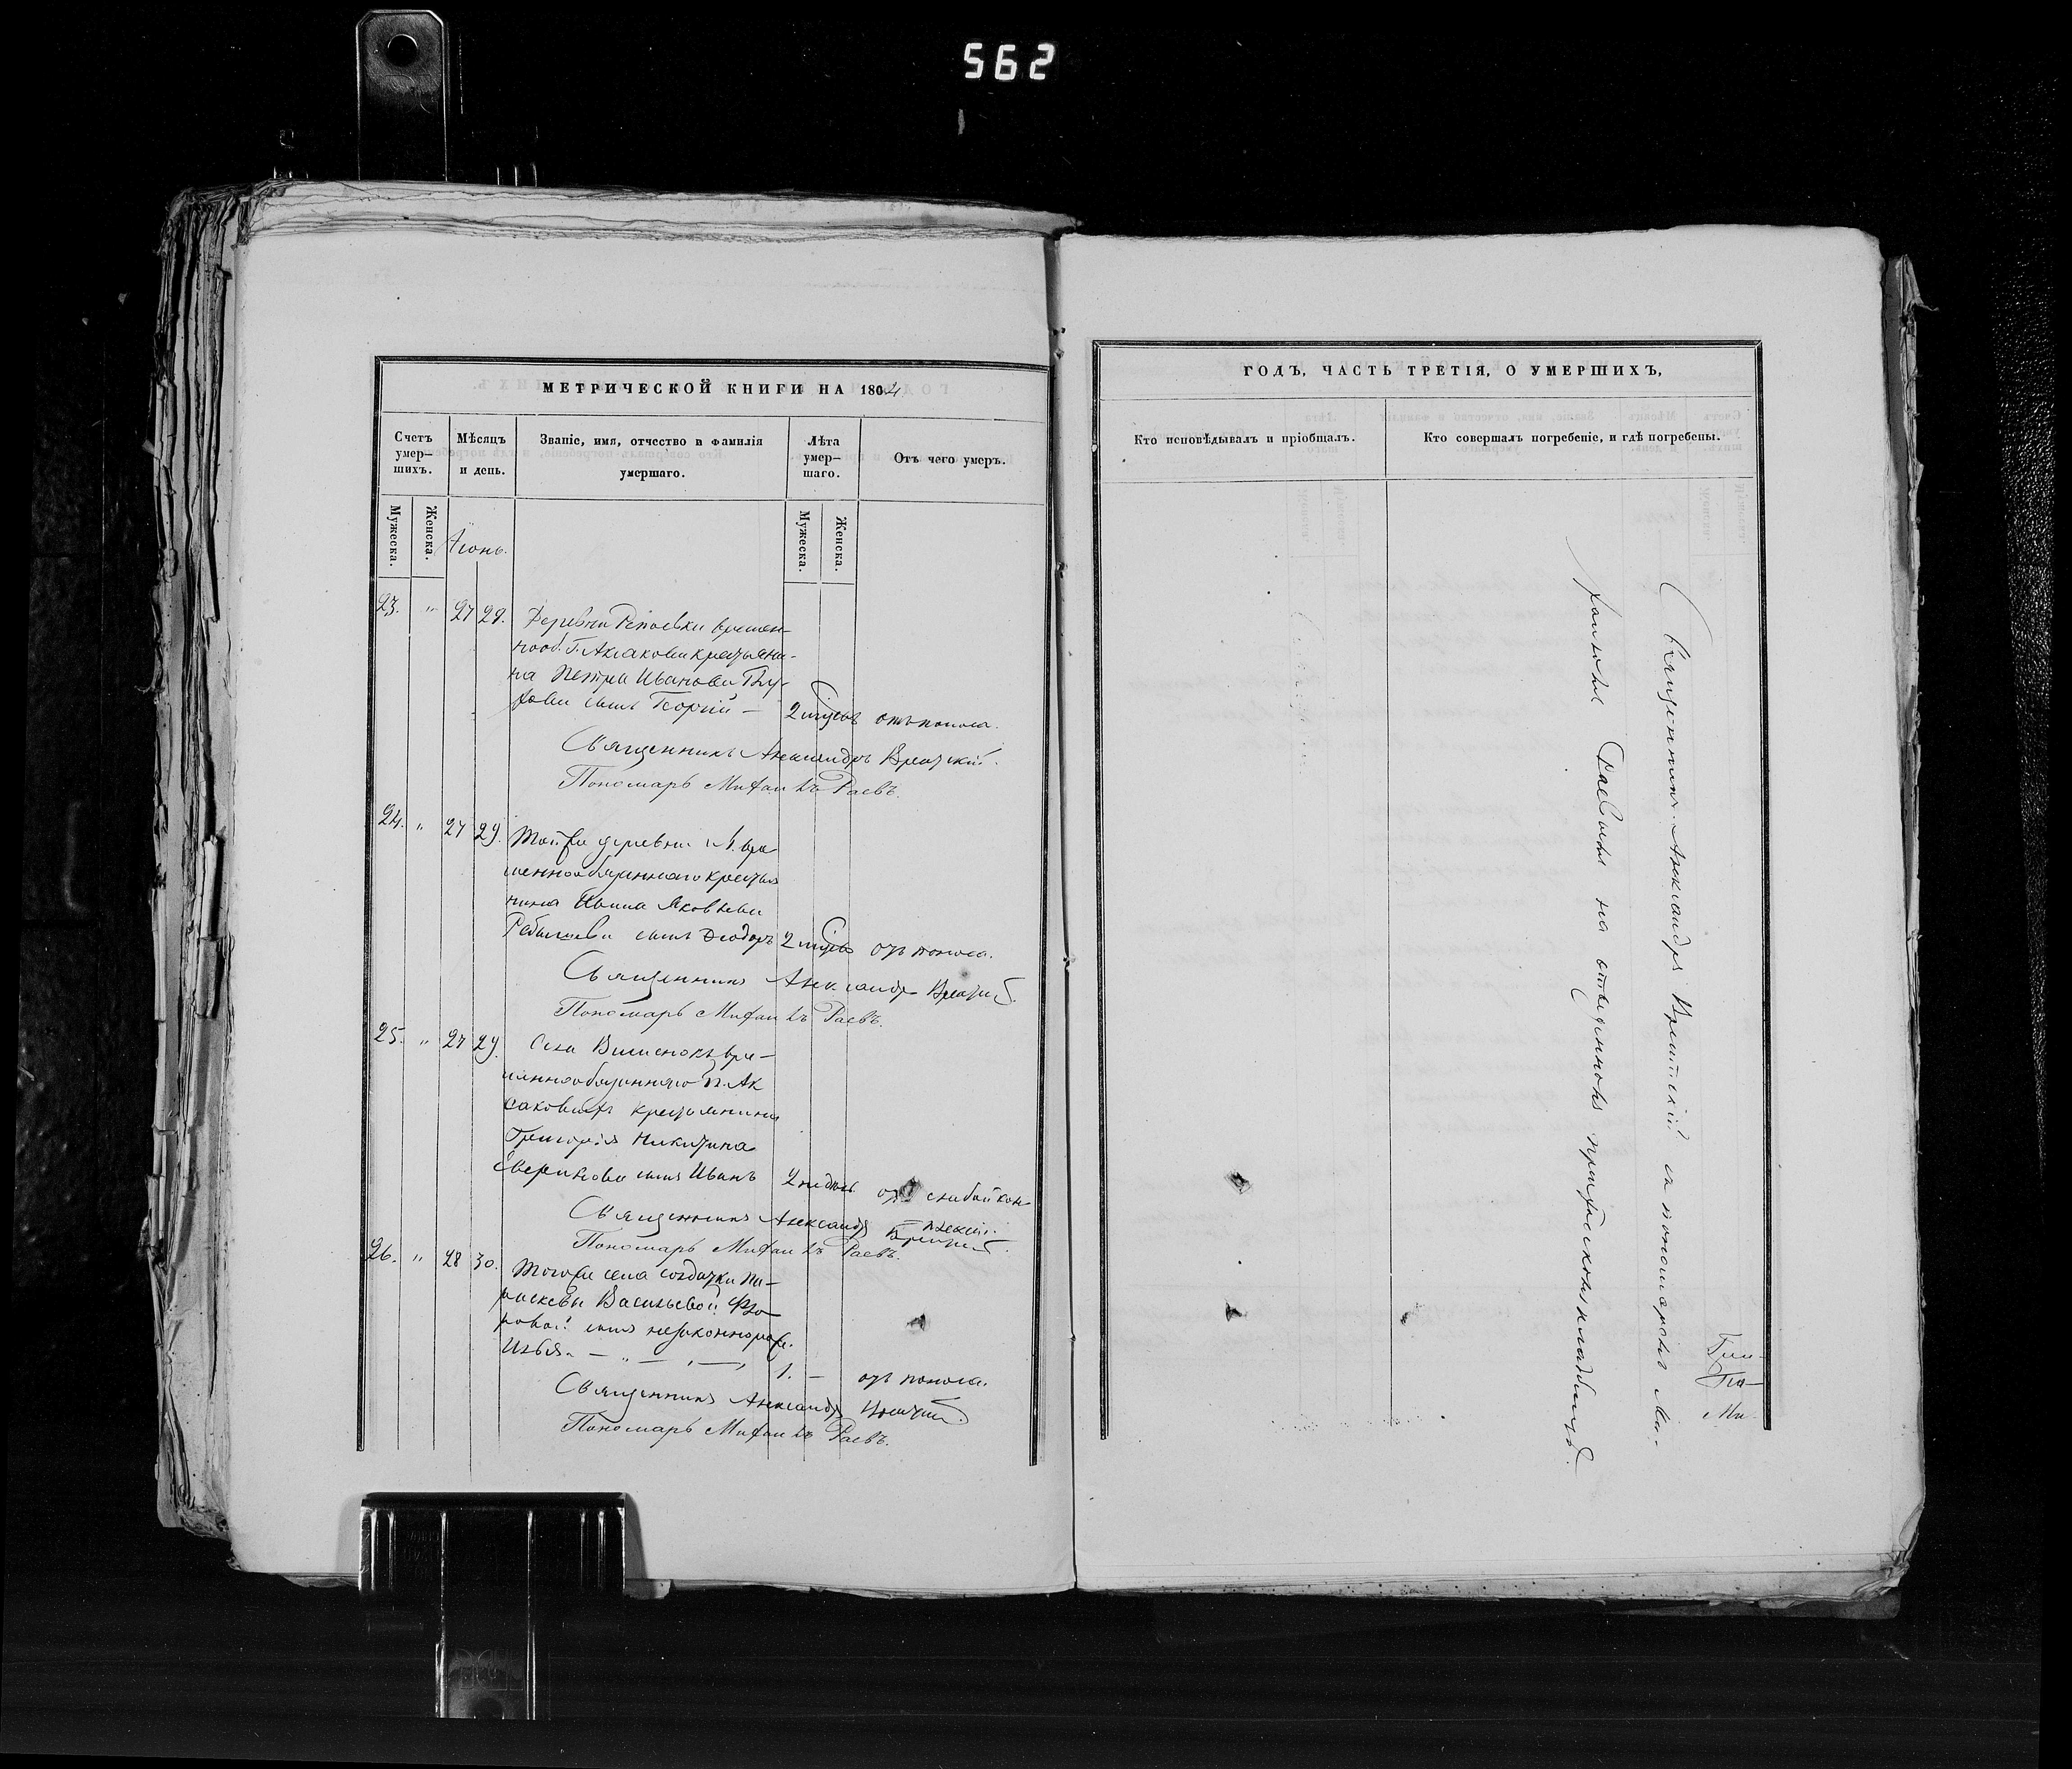 562
МЕТРИЧЕСКОЙ КНИГИ НА 1864
Счетъ умер-шихъ.
Мѣсяцъ и день.
Званіе, имя, отчество и фамилія умершаго.
Лѣта умер-шаго.
Отъ чего умеръ.
Мужеска.
Женска.
Мужеска.
Женска.
Іюнь.
23. " 27 29. Деревни Репьевки времен-
нооб. Г. Аксакова крестьяни-
на Петра Иванова
сынъ Георгій — 2 мцевъ отъ поноса.
Священникъ Александръ
Пономарь Михаилъ Раевъ.
24. " 27 29. Той же деревни и Г. вре
меннообязаннаго крестья
нина Ивана Яковлева
сынъ Ѳеодоръ 2 мцевъ отъ поноса.
Священникъ Александръ
Пономарь Михаилъ Раевъ.
25. " 27 29. Села вре-
меннообязаннаго Г. Ак
сакова крестьянина
Григорія Никитина
сынъ Иванъ 2 недель отъ слабой ком-
плекціи.
Священникъ Александръ
Пономарь Михаилъ Раевъ.
26. " 28 30. Того же села солдатки Па-
раскевы Васильевой
сынъ незаконнорож.
Илья. — " — " — " 1. — отъ поноса.
Священникъ Александръ
Пономарь Михаилъ Раевъ.
ГОДЪ, ЧАСТЬ ТРЕТІЯ, О УМЕРШИХЪ,
Кто исповѣдывалъ и пріобщалъ.
Кто совершалъ погребеніе, и гдѣ погребены.
Священникъ Александръ съ пономаремъ Ми-
хаиломъ Раевымъ на отведенномъ приходскомъ кладбищѣ.